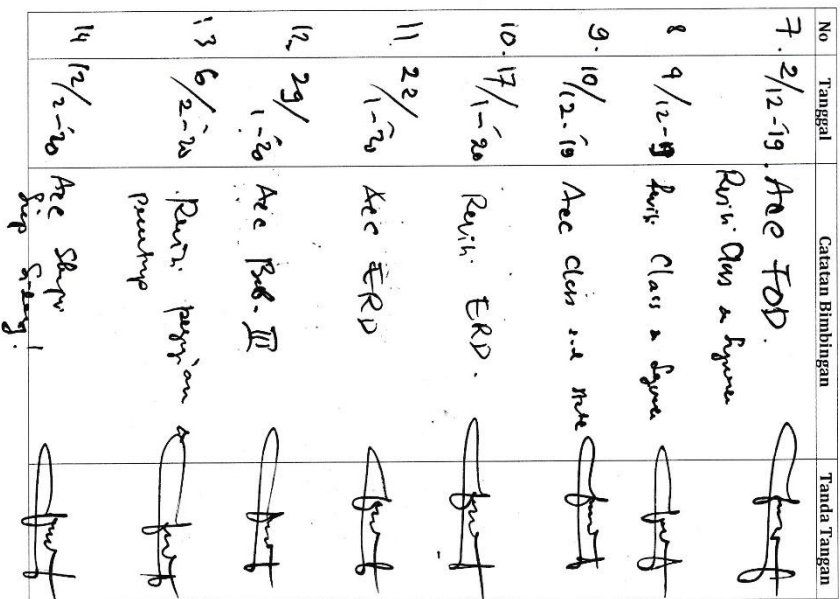 No Tanggal Catatan Bimbingan Tanda Tangan
7. 2/12-19. Acc FOD.
Revisi Class &
8 9/12-19 Revisi Class &
9. 10/12-19 Acc Class and state
10. 17/1-20 Revisi ERD.
11. 22/1-20 Acc ERD
12. 29/1-20 Acc Bab. III
13 6/2-20 Revisi pengujian &
penutup
14 12/2-20 Acc Skripsi
Siap Sidang!